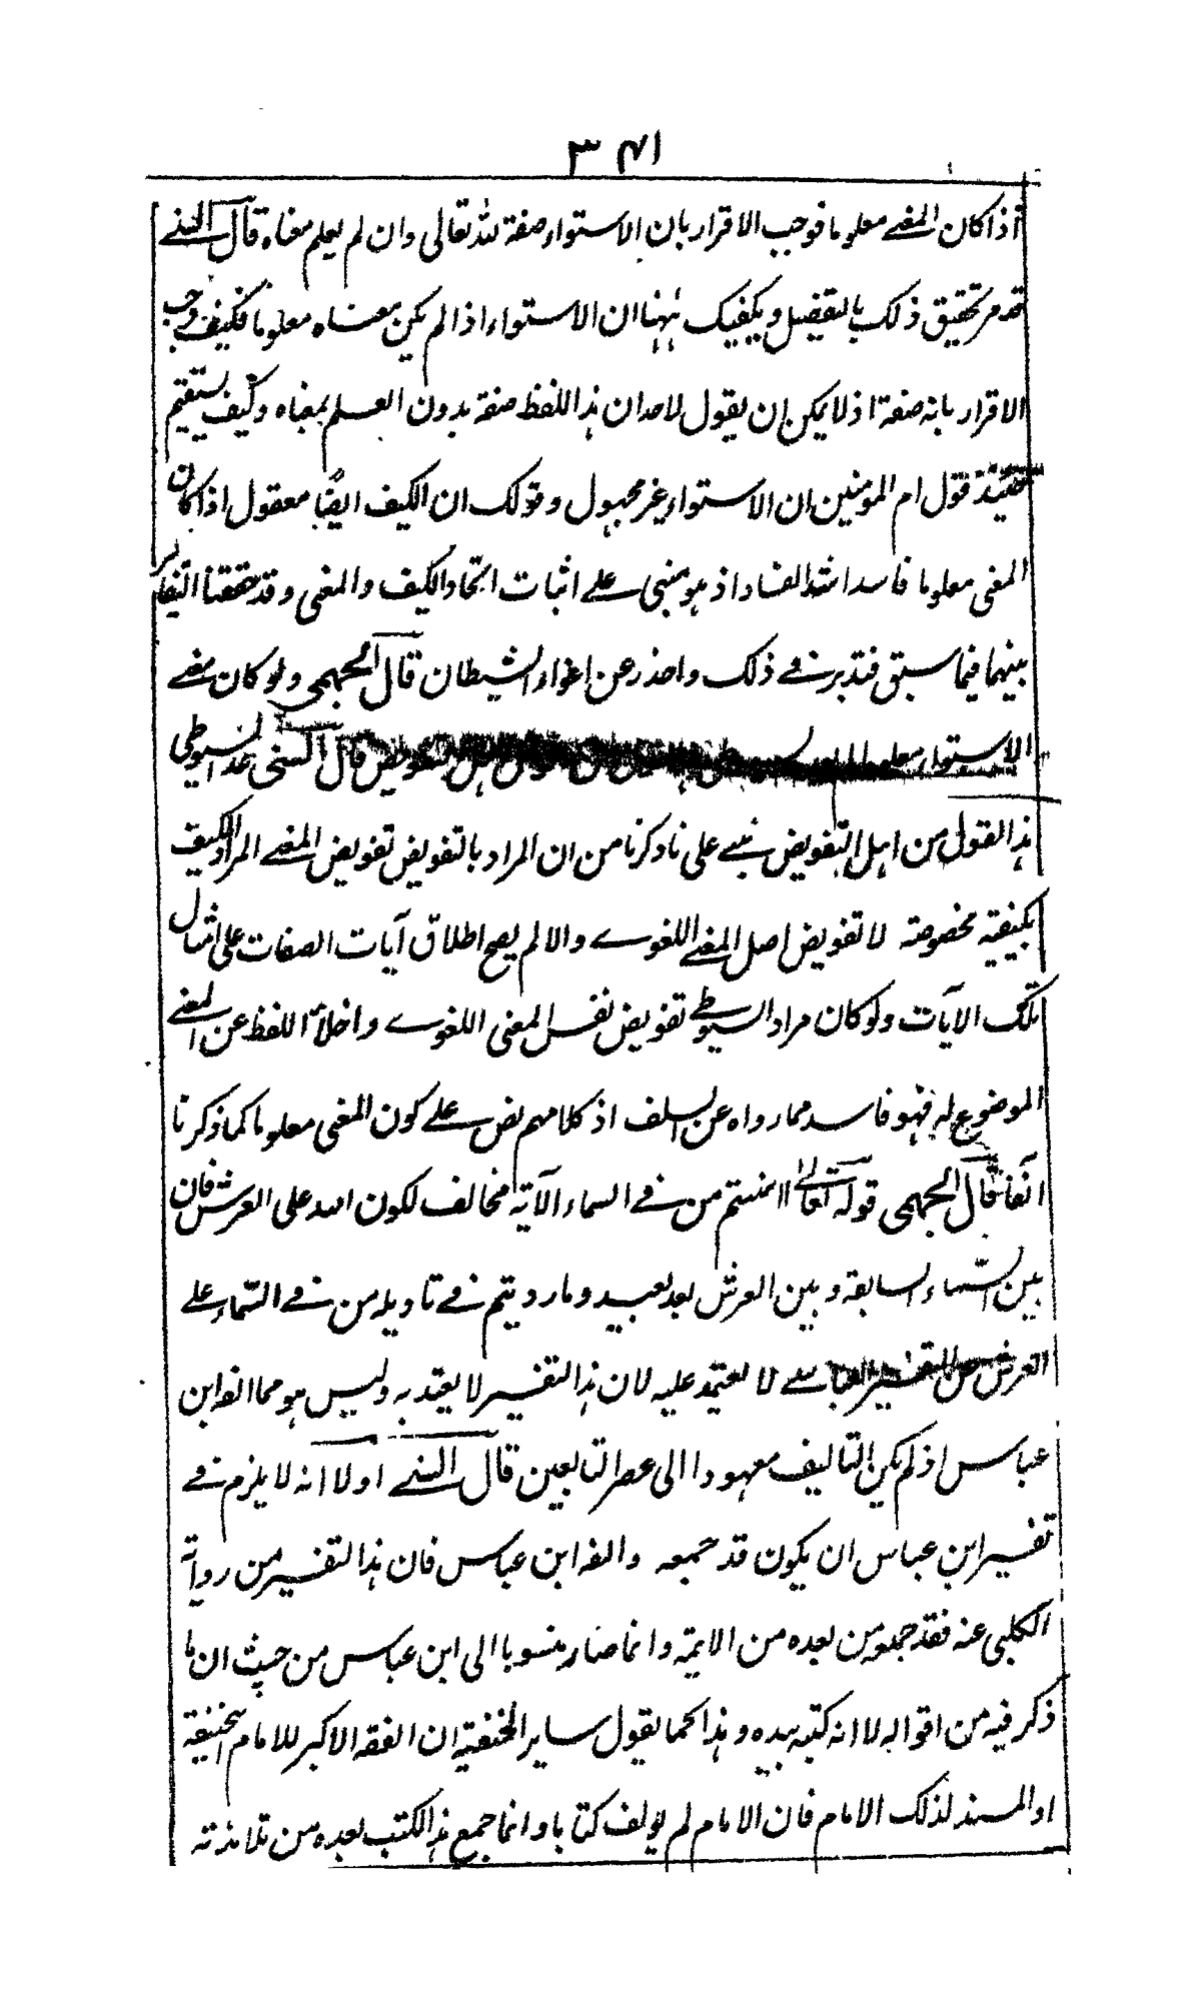 ٣٤١
اذا كان المعنے معلوما فوجب الاقرار بان الاستواء صفة لله تعالى وان لم يعلم معناه قال السنے
قد مر تحقيق ذلك بالتفصيل ويكفيك ههنا ان الاستواء اذا لم يكن معناه معلوما فكيف وجب
الاقرار بانه صفة اذ لا يمكن ان يقول لاحد ان هذا اللفظ صفة بدون العلم بمعناه وكيف يستقيم
حينئذ قول ام المومنين ان الاستواء غير مجهول وقولك ان الكيف ايضا معقول اذا كان
المعنى معلوما فاسد اشد الفساد اذ هو مبنى على اثبات اتحاد الكيف والمعنى وقد حققنا التغاير
بينهما فيما سبق فتدبر فے ذلك واحذر عن اغواء الشيطان قال الجهمى ولو كان معنے
الاستواء معلوما التفويض قال السنى عد السيوطى
هذا القول من اهل التفويض مبنے على ما ذكرنا من ان المراد بالتفويض تفويض المعنے المراد المكيف
بكيفية مخصوصة لا تفويض اصل المعنے اللغوے والا لم يصح اطلاق آيات الصفات على امثال
تلك الآيات ولو كان مراد السيوطے تفويض نفس المعنى اللغوے واخلاء اللفظ عن المعنے
الموضوع له فهو فاسد مما رواه عن السلف اذ كلامهم نص علے كون المعنى معلوما كما ذكرنا
آنفا قال الجهمى قوله تعالے ءامنتم من فے السماء الآية مخالف لكون الله على العرش فان
بين السماء السابعة وبين العرش بعد بعيد وما رويتم فے تاويله من فے السماء علے
العرش من التفسير العباسے لا يعتمد عليه لان هذا التفسير لا يعتد به وليس هو مما الفه ابن
عباس اذ لم يكن التاليف معهودا الى عصر التابعين قال السنے اولا انه لا يلزم فے
تفسير ابن عباس ان يكون قد جمعه والفه ابن عباس فان هذا التفسير من رواية
الكلبى عنه فقد جمعه من بعده من الايمة وانما صار منسوبا الى ابن عباس من حيث ان ما
ذكر فيه من اقواله لا انه كتبه بيده وهذا كما يقول ساير الحنفية ان الفقه الاكبر للامام ابيحنيفة
او المسند لذلك الامام فان الامام لم يولف كتابا وانما جمع هذه الكتب بعده من تلامذته